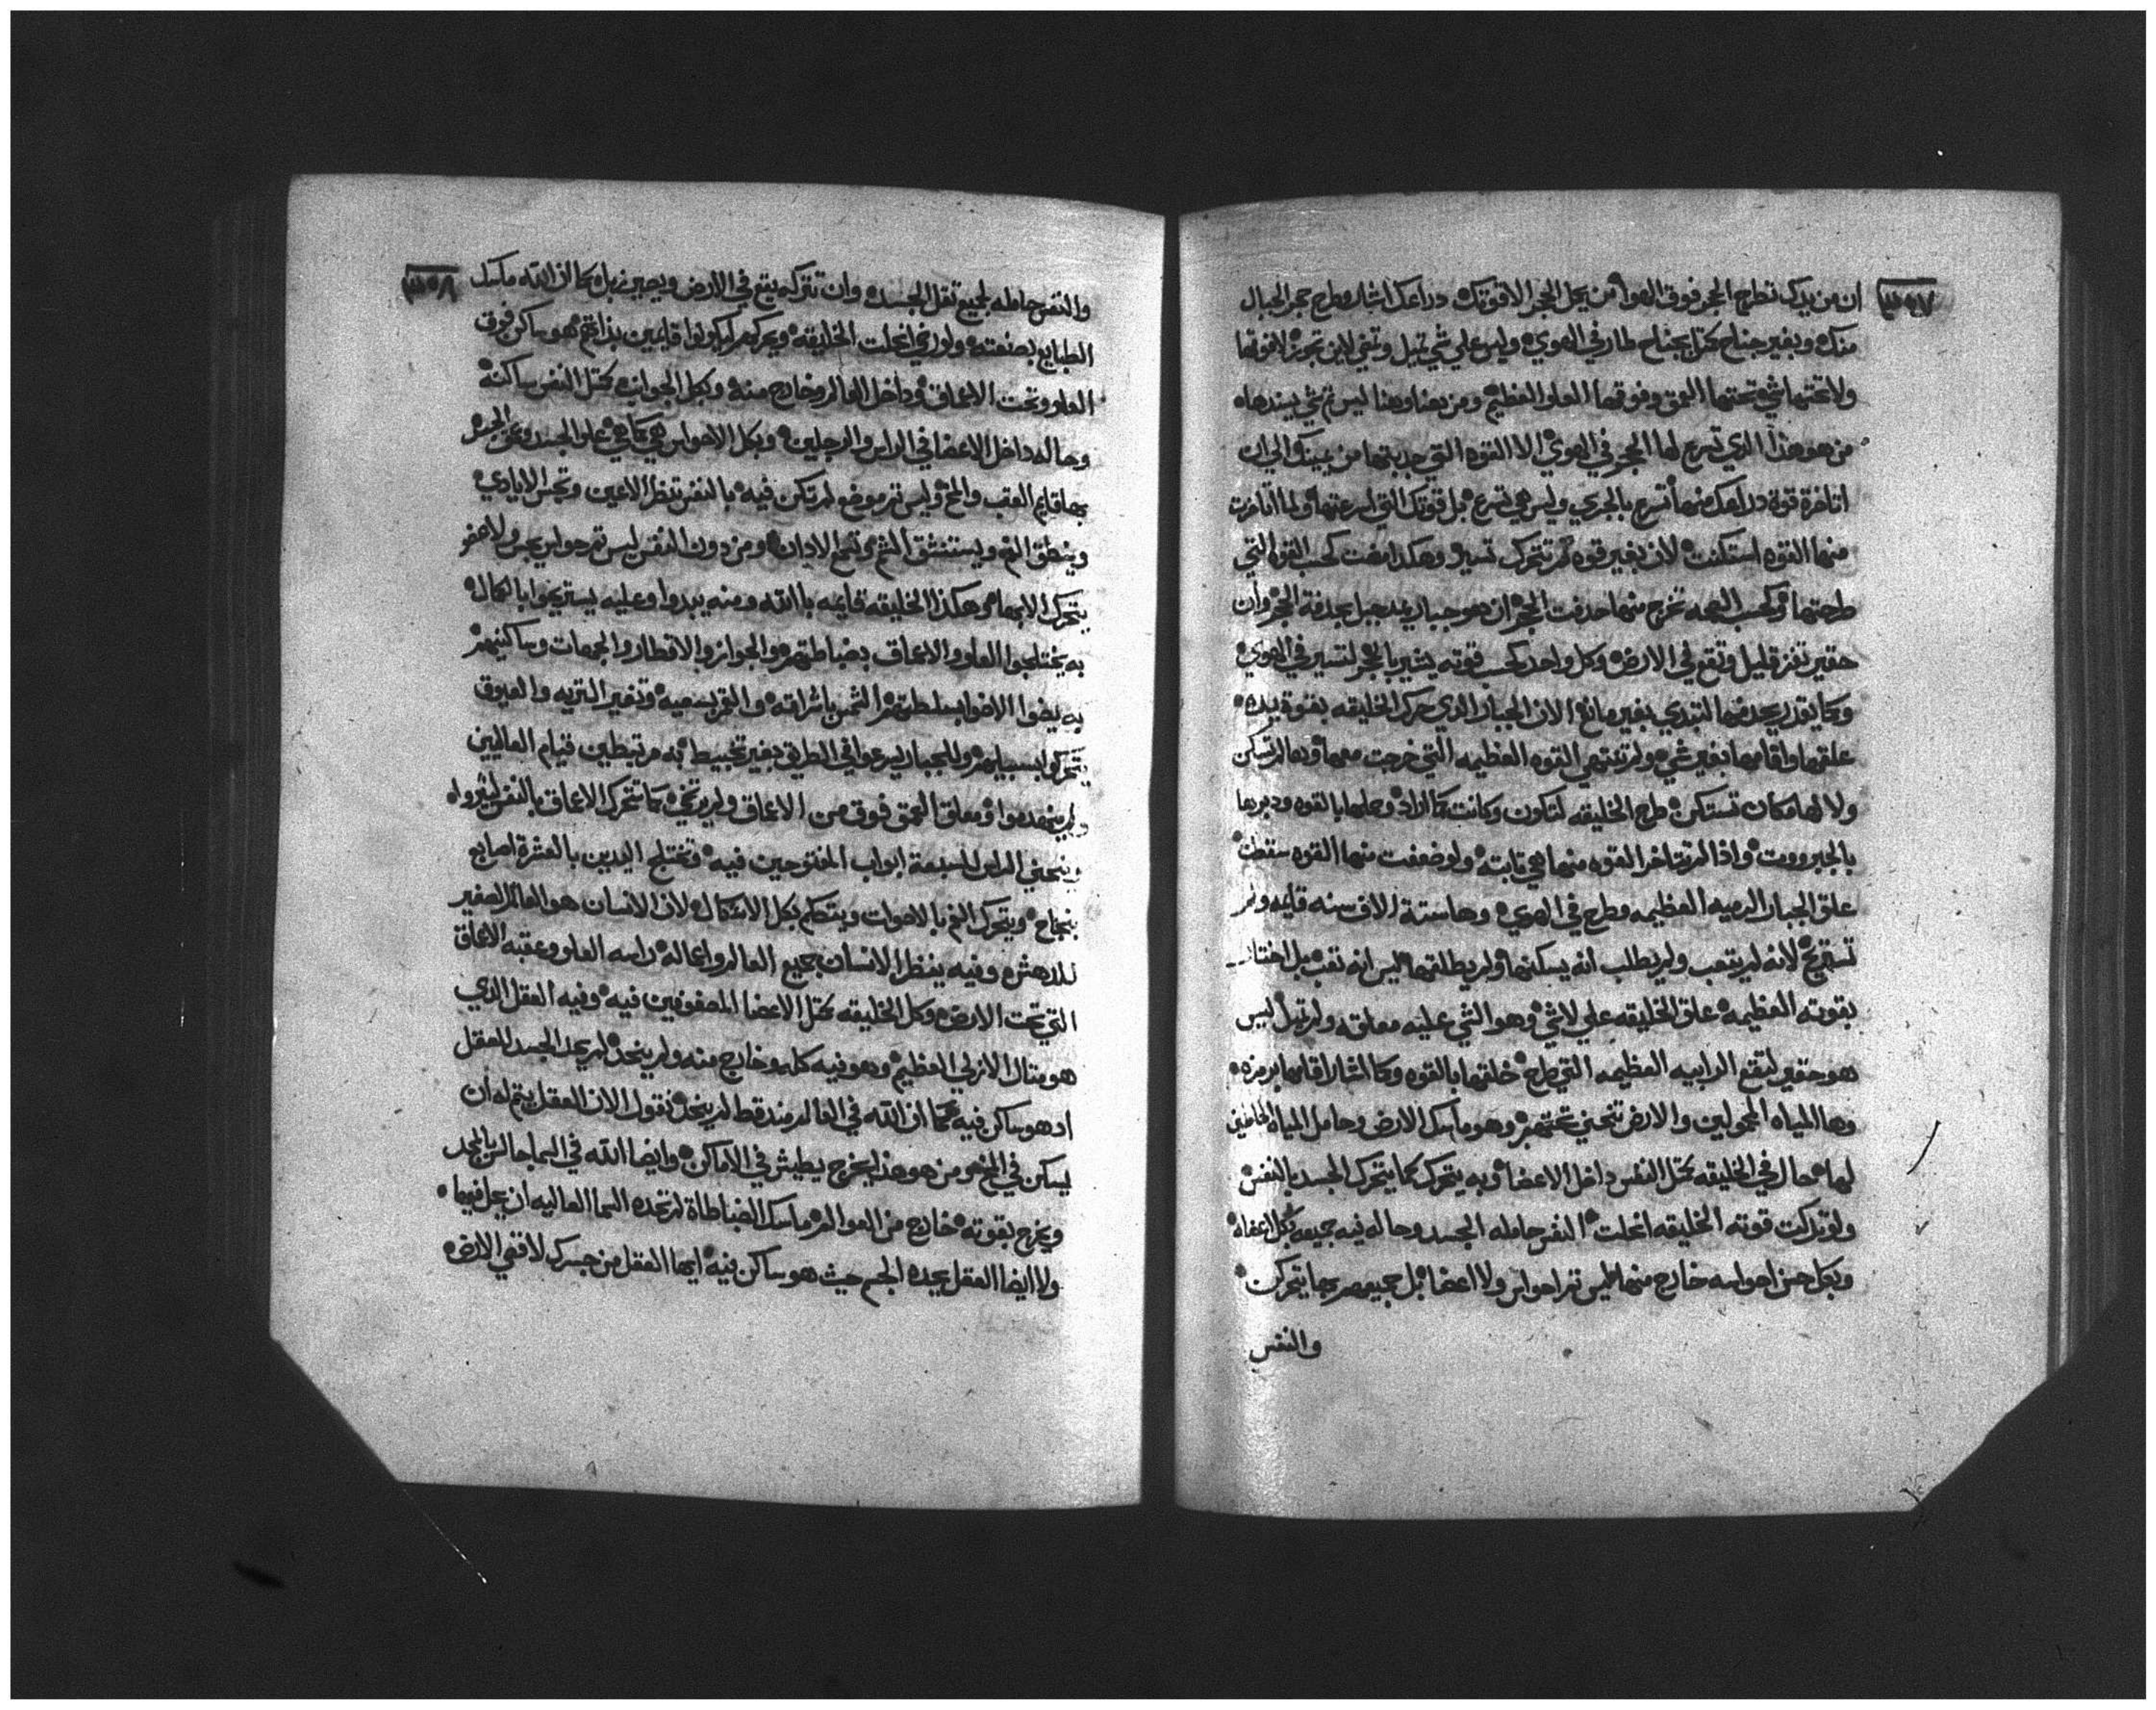 ٣٥٧
ان من يدك تطرح الحجر فوق الهوا من يحمل الحجر الا قوتك دراعك اشار وطرح حجر الجبال
منك وبغير جناح كمثل بجناح طار في الهوي وليس علي شي ثقيل وتمضي لاين تجوز لا فوقها
ولا تحتها شي تحتها العمق وفوقها العلو العظيم ومن هنا وهنا ليس ثم شي يسندها
من هو هذا الذي تسرع لها الحجر في الهوي الا القوه التي جدبتها من يمينك والي ان
اتاخرة قوة دراعك منها تسرع بالجري وليس هي تسرع بل قوتك التي اسرعتها ولما اتاخرت
منها القوه استكنت لان بغير قوه لم تتحرك تسير وهكذا مضت كحسب القوه التي
طرحتها وكحسب الهمه تخرج منها حدفت الحجر ان هو جبار يمد جبل بحدفة الحجر وان
حقير تفز قليل وتقع في الارض وكل واحد كحسب قوته يشير بالحجر لتسير في الهوي
وكما يقدر يحدفها التبدي بغير مانع الان الجبار الذي حرك الخليقه بقوة يده
علقها واقامها بغير شي ولم تنتهي القوه العظيمه التي خرجت معها وبها لم تسكن
ولا لها مكان تستكن طرح الخليقه لتكون وكانت كما اراد وحملها بالقوه ودبرها
بالجبرووت واذا لم تتاخر القوه منها هي تابته ولو ضعفت منها القوه سقطت
علق الجبار الرميه العظيمه وطرح في الهوي وها ستة الاف سنه قايمه ولم
تستريح لانه لم يتعب ولم يطلب انه يسكنها ولم يطلقها ليس انه تعب بل اختار
بقوته العظيمه علق الخليقه علي لاشي وهو الشي عليه معلقه ولم تميل ليس
هو حقير لتقع الرابيه العظيمه التي طرح خلقها بالقوه وكما اشار اقامها برمزه
وها المياه المحمولين والارض تنحني تحتهم وهو ماسك الارض وحامل المياه الحاملين
لها حال في الخليقه كمثل النفس داخل الاعضا وبه يتحرك كما يتحرك الجسد بالنفس
ولو تركت قوته الخليقه انحلت النفس حامله الجسد وحاله فيه جميعه بكل اعضاه
وبكل حسن احواسه خارج منها ليس ثم احواس ولا اعضا بل جميعهم بها يتحركن
والنفس
٣٥٨
والنفس حامله لجميع ثقل الجسد وان تتركه يقع في الارض ويصير زبل كما ان الله ماسك
الطبايع بصنعته ولو رخي انحلت الخليقه ويحركهم ليكونوا قايمين بذاتهم هو ساكن فوق
العلو وتحت الاعماق وداخل العالم وخارج منه وبكل الجوانب كمثل النفس ساكنة
وحاله داخل الاعضا في الراس والرجلين وبكل الاحواس هي كما هي علو الجسد وعمق الجسد
بها قايم العقب والمخ وليس ثم موضع لم تكن فيه بالنفس تنظر الاعين وتجس الايادي
وينطق الفم ويستنشق الشم وتسمع الادان ومن دون النفس ليس ثم حواس يجس ولا عضو
يتحرك الا بها وهكذا الخليقه قايمه بالله ومنه يبدوا وعليه يستريحوا بالكمال
به يختلجوا العلو والاعماق بضباطتهم والجوانز والاقطار والجهات وساكنيهم
به يضوا الاضوا بسلطتهم الشمس باشراقته والقمر بسميه وتغير التريه والعيوق
يتحركوا بسبيلهم والجبار يسرعوا في الطريق بغير تخبيط به مرتبطين قيام العالمين
ولم ينهدموا ومعلق العمق فوق من الاعماق ولم يرتخي كما تتحرك الاعماق بالنفس ليثرواه
وينحني الراس للسبعة ابواب المفتوحين فيه وتختلج اليدين بالعشرة اصابع
بنجاح ويتحرك الفم بالاصوات ويتكلم بكل الاشكال لان الانسان هو العالم الصغير
للدهش وفيه ينظر الانسان جميع العالم واعماله راسه العلو وعقبه الاعماق
التي تحت الارض وكل الخليقه كمثل الاعضا المصفوفين فيه وفيه العقل الذي
هو متال الازلي العظيم وهو فيه كله وخارج منه ولم ينحد لم يحد الجسد للعقل
اد هو ساكن فيه كما ان الله في العالم منه قط لم ينحد نقول الان العقل يتم له ان
يسكن في المخ ومن هو هذا يخرج يطيش في الاماكن وايضا الله في السما جالس بالمجد
ويخرج بقوته خارج من العوالم ماسك الضباطاة لم تحده السما العاليه ان يحل فيها
ولا ايضا العقل يحده الجسم حيث هو ساكن فيه ايها العقل من جسرك لافقي الارض